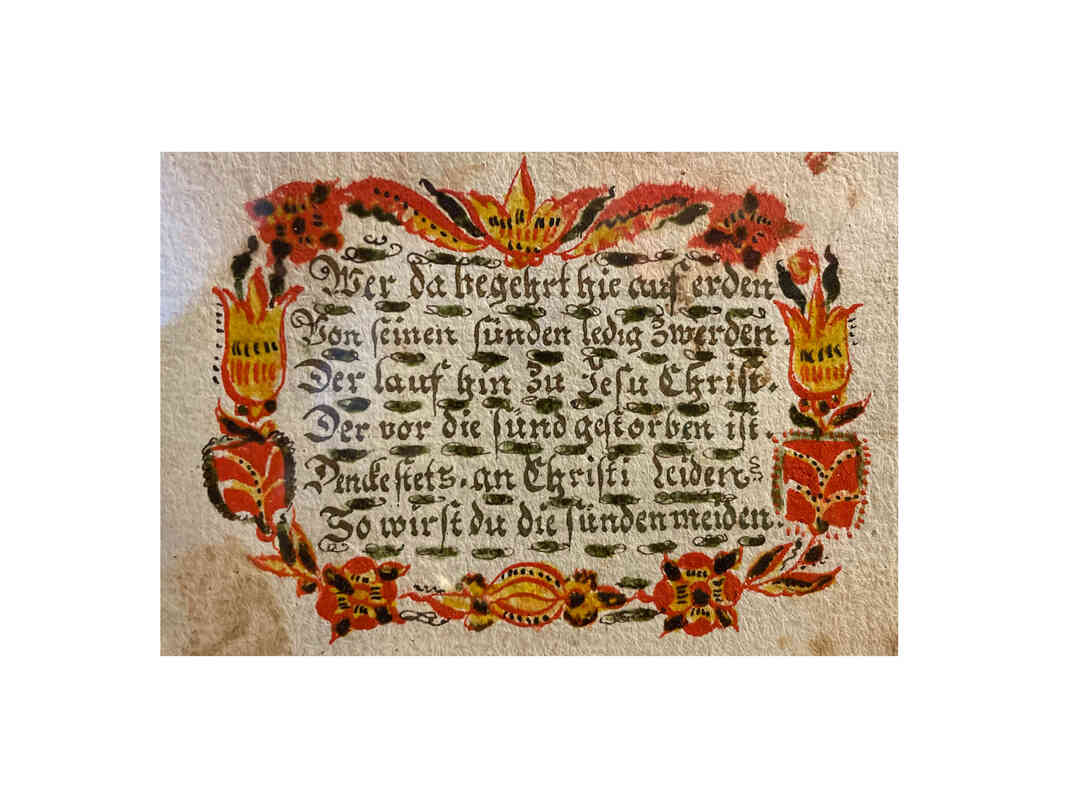 Wer da begehrt hie auf erden
Von seinen sünden ledig zwerden.
Der lauf hin zu Jesu Christ.
Der vor die sünd gestorben ist.
Dencke stets. an Christi Leiden
So wirst du die sünden meiden.